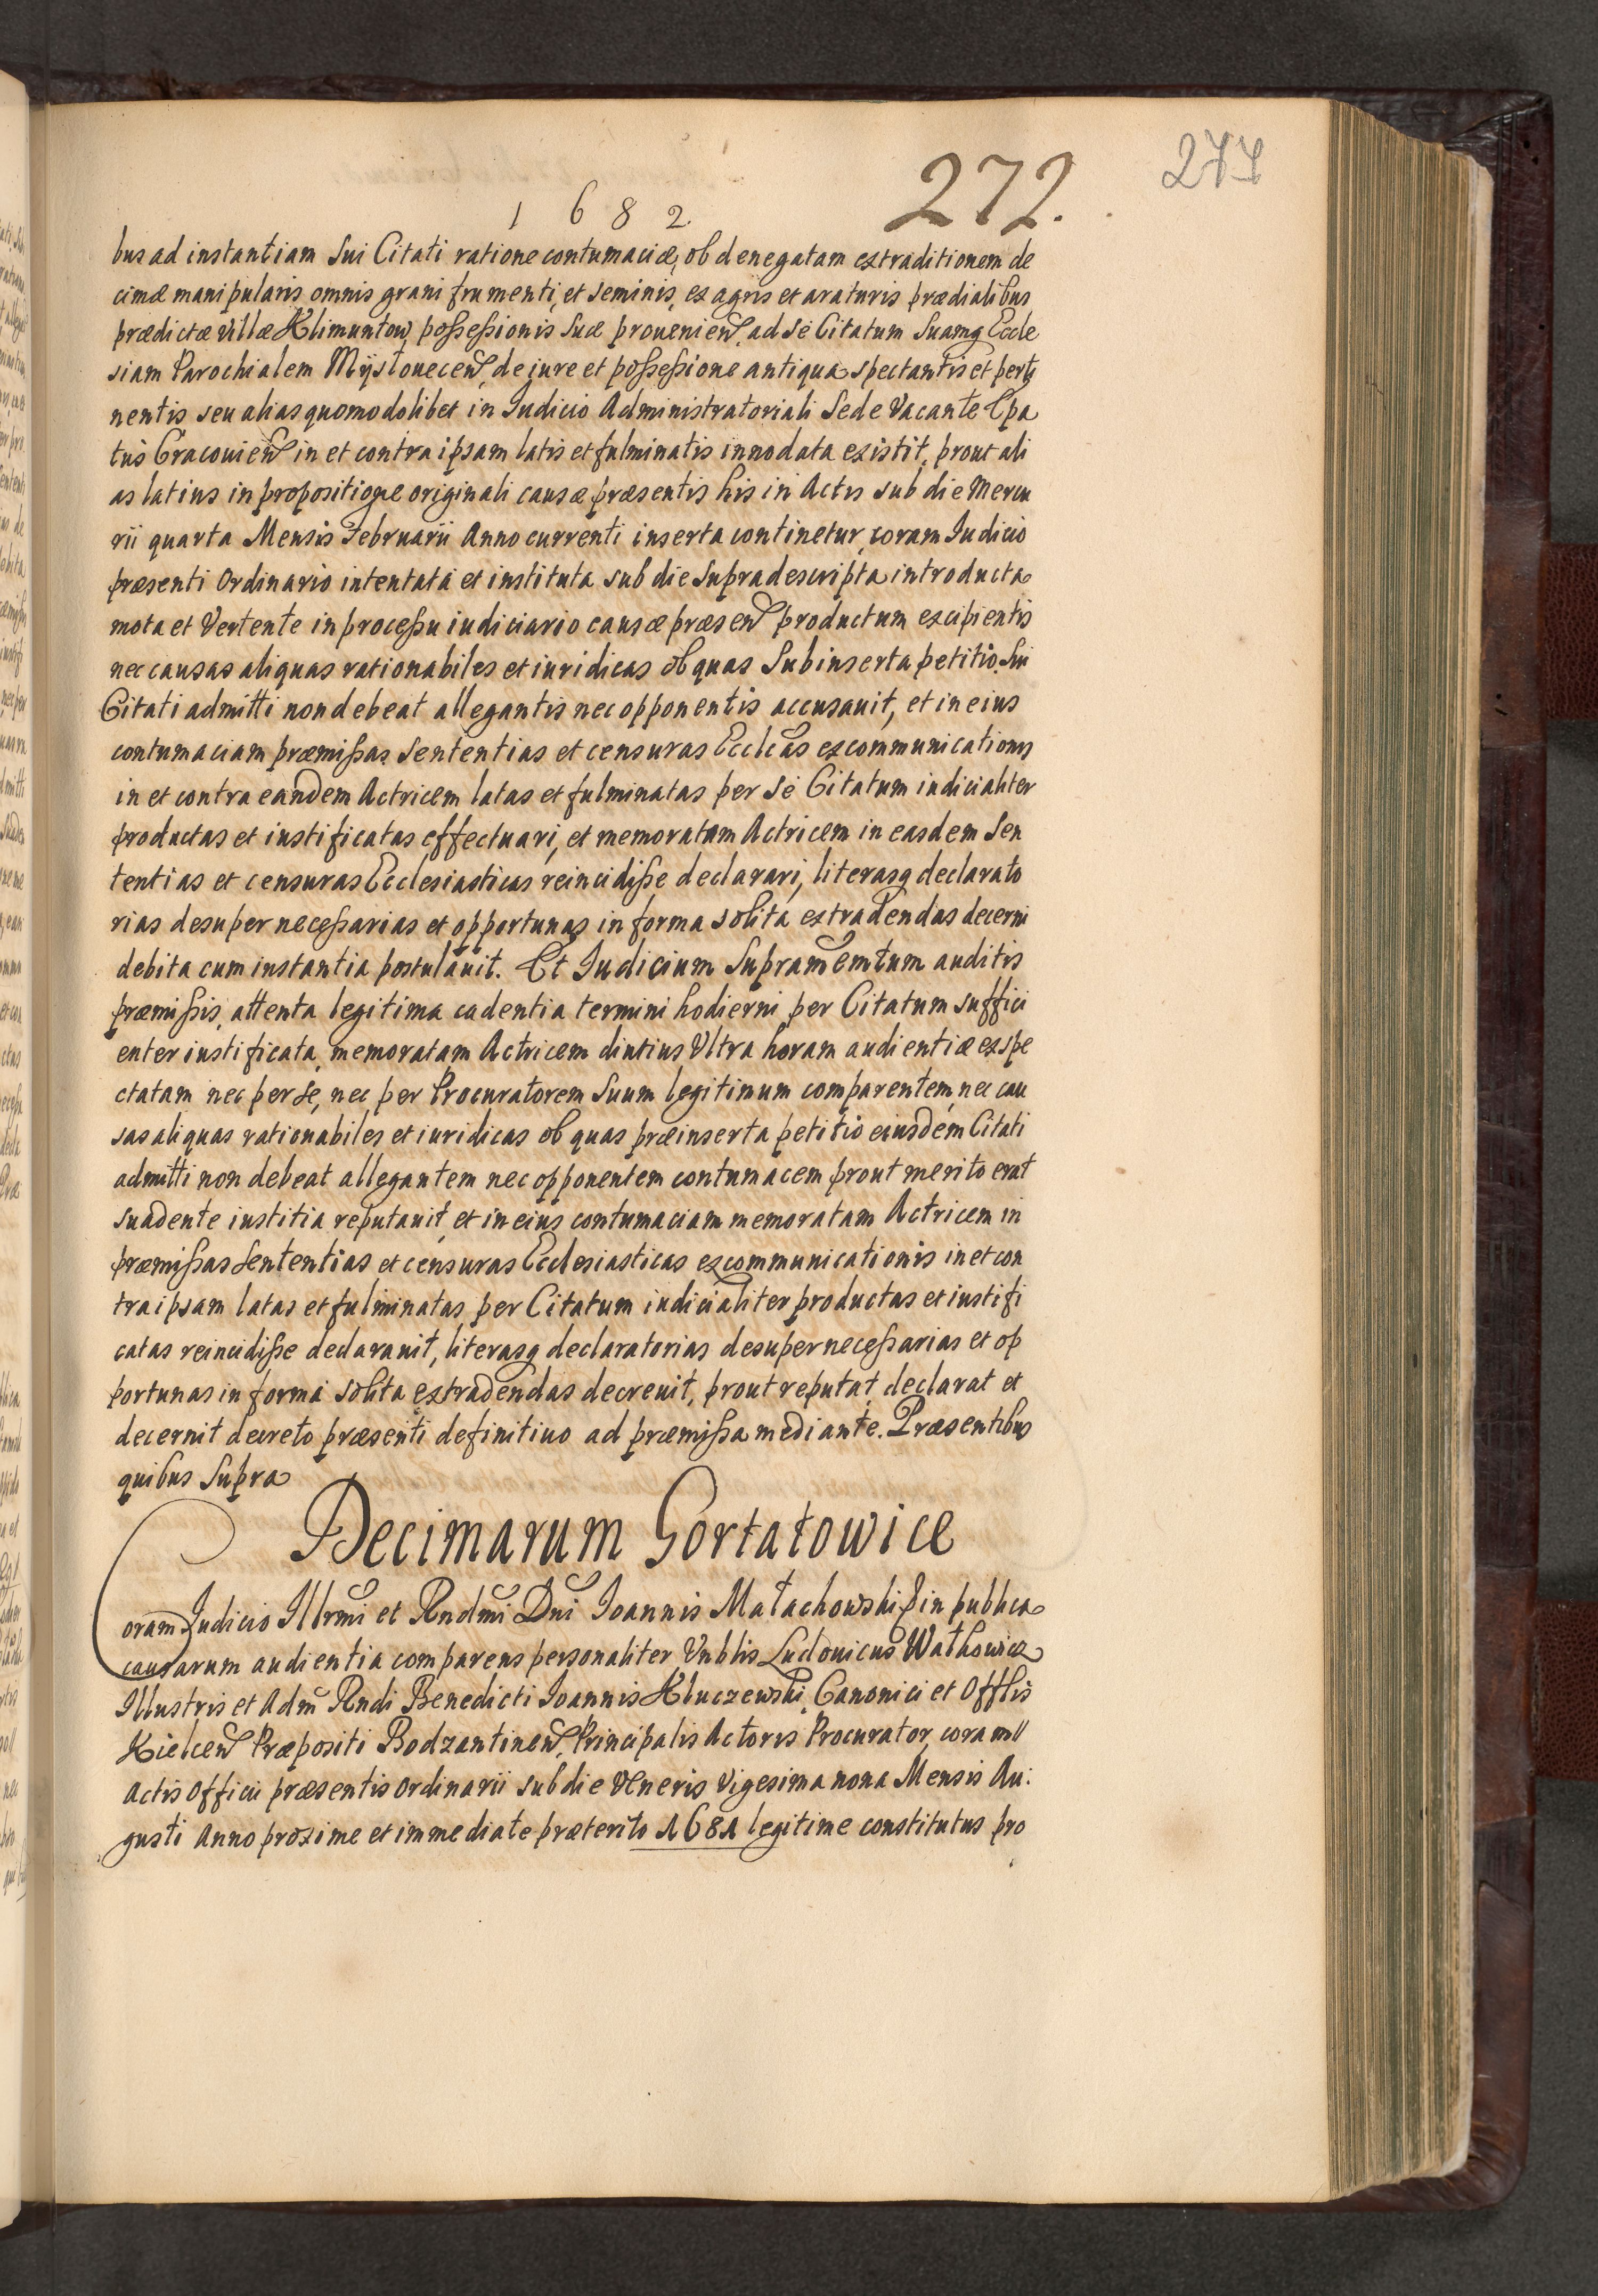 277
272.
1 6 8 2
bus ad instantiam Sui Citati ratione contumaciæ, ob denegatam extraditionem de
cimæ manipularis omnis grani frumenti, et seminis, ex agris et araturis prædialibus
prædictæ villæ Klimuntow, possessionis suæ provenien̄, ad se Citatum Suamq Eccle
siam Parochialem Myslouecen̄, de iure et possessione antiqua spectantis et perti
nentis, seu alias quomodolibet in Iudicio Administratoriali Sede Vacante Epa
tus Cracouien̄ in et contra ipsam latis et fulminatis innodata existit, prout ali
as latius in propositione originali causæ præsentis his in Actis sub die Mercu
rii quarta Mensis Februarii Anno currenti inserta continetur, coram Iudicio
præsenti Ordinario intentata et instituta sub die Supradescripta introducta
mota et Vertente in processu iudiciario causæ præsen̄ productum excipientis
nec causas aliquas rationabiles et iuridicas ob quas Subinserta petitio Sui
Citati admitti non debeat allegantis nec opponentis accusauit, et in eius
contumaciam præmissas Sententias et censuras Eccleas excommunicationis
in et contra eandem Actricem latas et fulminatas per se Citatum iudicialiter
productas et iustificatas effectuari, et memoratam Actricem in easdem Sen
tentias et censuras Ecclesiasticas reincidisse declarari, literasq declarato
rias desuper necessarias et opportunas in forma solita extradendas decerni
debita cum instantia postulauit. Et Iudicium Supramemtum auditis
præmissis, attenta legitima cadentia termini hodierni per Citatum suffici
enter iustificata, memoratam Actricem diutius Vltra horam audientiæ expe
ctatam nec per se, nec per Procuratorem Suum legitimum comparentem, nec cau
sas aliquas rationabiles et iuridicas ob quas præinserta petitio eiusdem Citati
admitti non debeat allegantem nec opponentem contumacem prout merito erat
suadente iustitia reputauit, et in eius contumaciam memoratam Actricem in
præmissas Sententias et censuras Ecclesiasticas excommunicationis in et con
tra ipsam latas et fulminatas, per Citatum iudicialiter productas et iustifi
catas reincidisse declarauit, literasq declaratorias desuper necessarias et op
portunas in forma solita extradendas decreuit, prout reputat, declarat et
decernit decreto præsenti definitiuo ad præmissa mediante. Præsentibus
quibus Supra
Decimarum Gortatowice
Coram Iudicio Illrmi et Rndmi Dni Ioannis Małachowski E in publica
causarum audientia comparens personaliter Vnblis Ludouicus Wathowicz
Illustris et Adm Rndi Benedicti Ioannis Kluczewski, Canonici et Offlis
Kielcen̄ Præpositi Bodzantinen̄, Principalis Actoris Procurator, coram
Actis Officii præsentis Ordinarii sub die Veneris Vigesima nona Mensis Au:
gusti Anno proxime et immediate præterito 1681 legitime constitutus pro